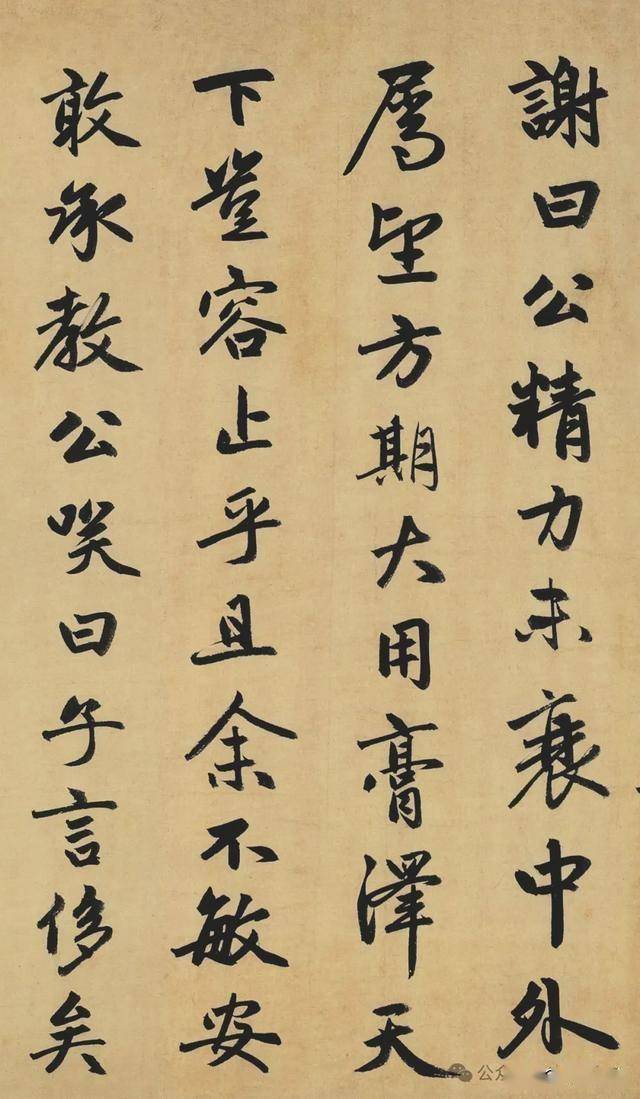 謝曰公精力未衰中外
属望方期大用膏澤天
下豈容止乎且余不敏安
敢承教公咲曰子言侈矣
公众